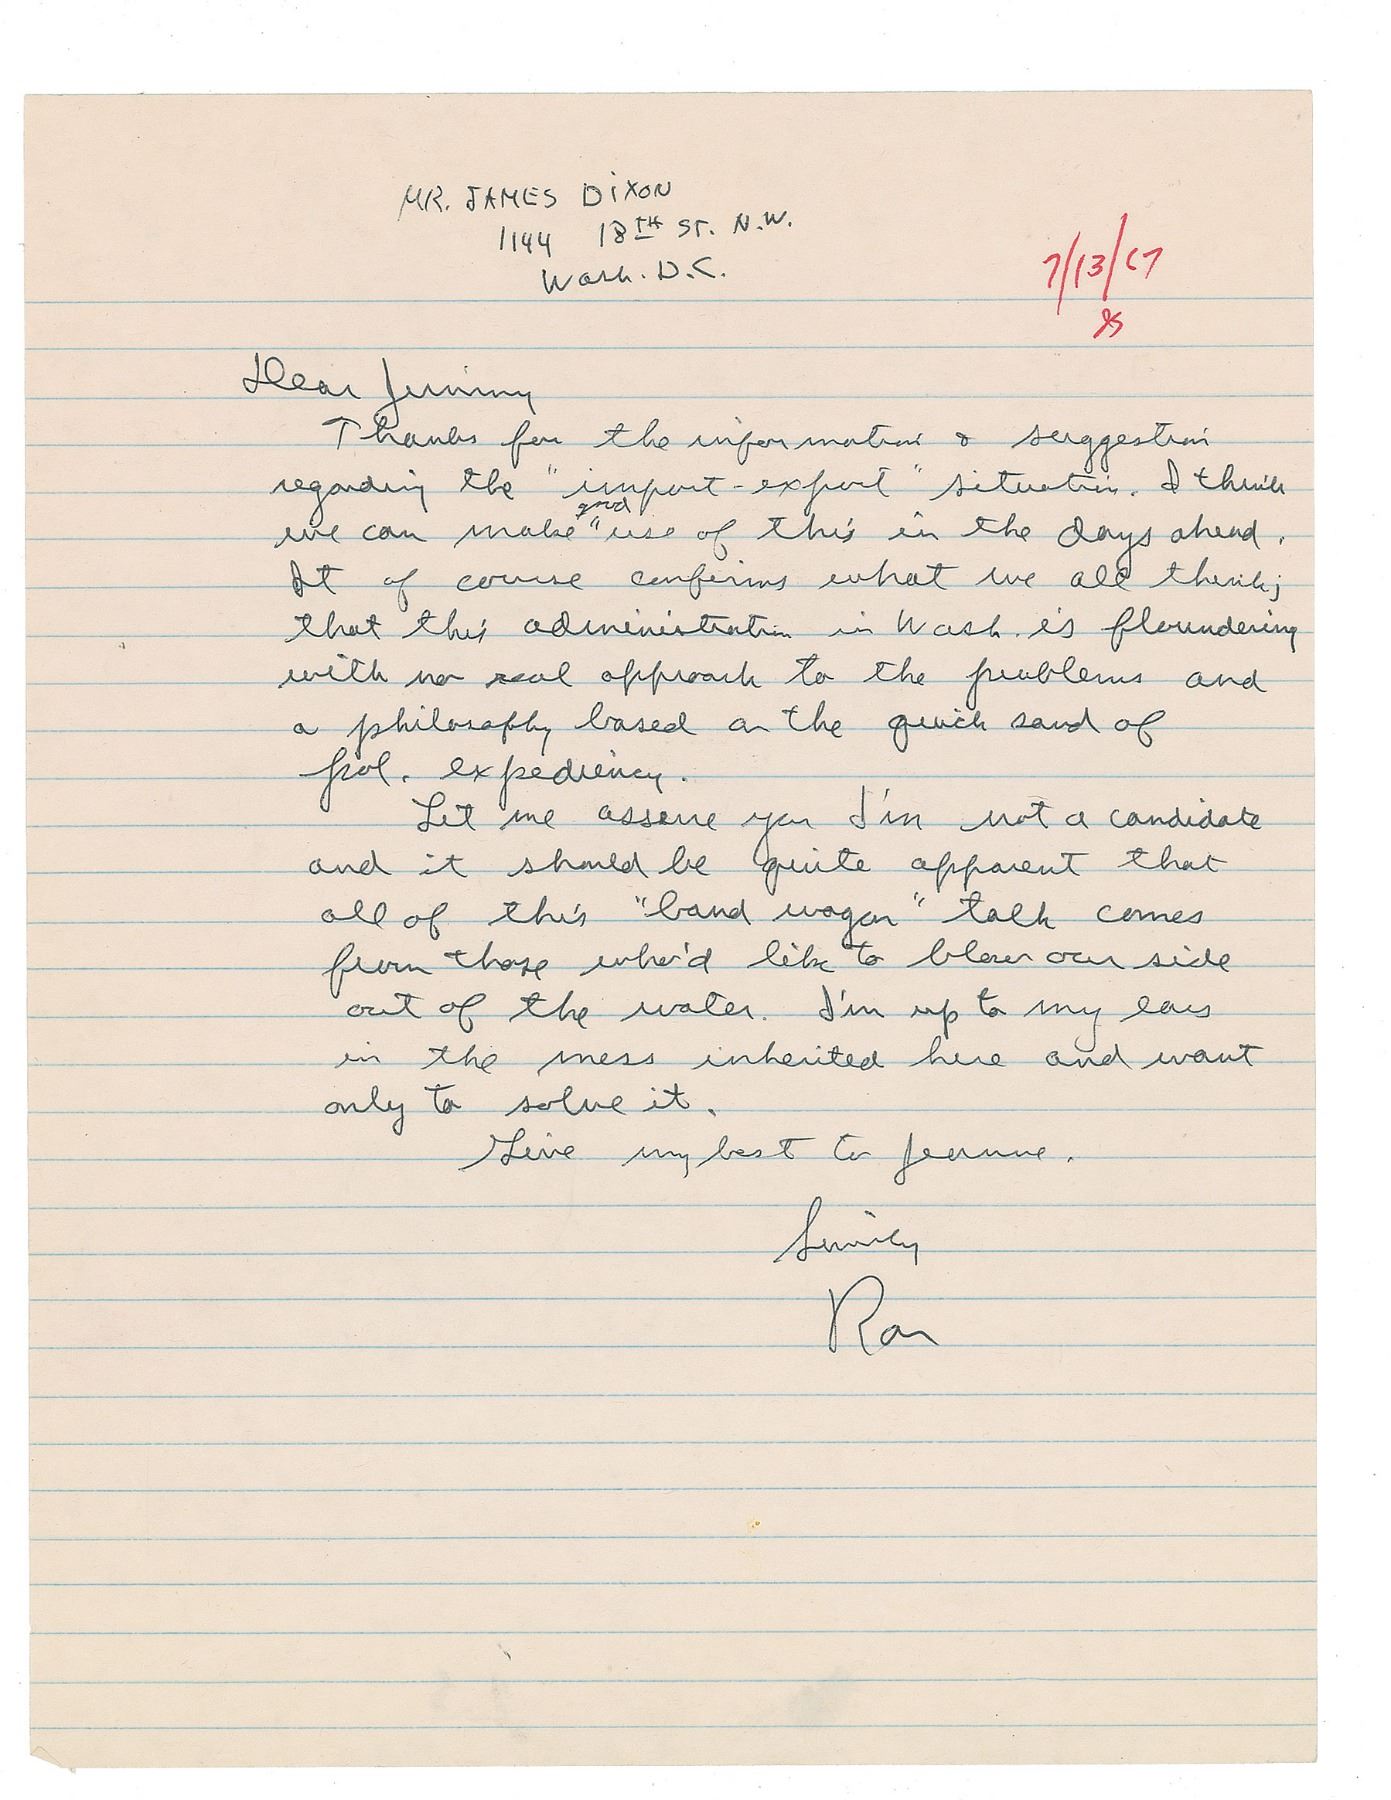 MR. JAMES DIXON
1144 18TH ST. N.W.
Wash. D.C.
7/13/67
Dear Jimmy
Thanks for the information & suggestion
regarding the "import-export" situation. I think
we can make good use of this in the days ahead.
It of course confirms what we all think;
that this administration in Wash. is floundering
with no real approach to the problems and
a philosophy based on the quick sand of
pol. expediency.
Let me assure you I'm not a candidate
and it should be quite apparent that
all of this "band wagon" talk comes
from those who'd like to blow our side
out of the water. I'm up to my ears
in the mess inherited here and want
only to solve it.
Give my best to Jeanne.
Sincerely
Ron